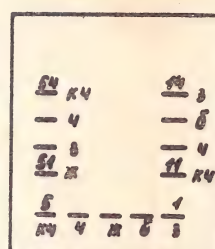 54 кч 14 з
ч б
з ч
51 ж 11 кч
5 1
кч ч ж б з